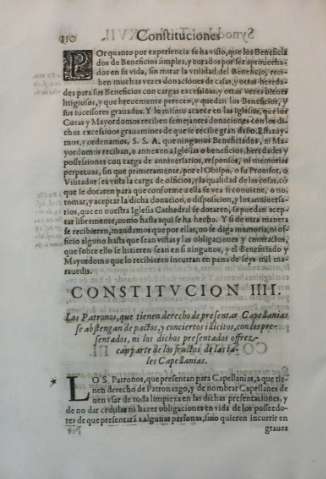 310 Constituciones
POr quanto por experiencia se ha visto, que los Beneficia
dos de Beneficios simples, y dorados por ser aprouecha-
dos en su vida, sin mirar la vtilidad del Beneficio, reci-
ben muchas vezes donaciones de casas, y otras hereda-
des para sus Beneficios con cargas excessiuas, y otras vezes bienes
litigiosos, y que breuemente perecen, y quedan los Beneficios, y
sus sucessores grauados. Y lo mismo acaece en las Iglesias, que los
Curas y Mayordomos reciben semejantes donaciones con los di-
chos excessiuos grauamines de que se recibe gran daño.
y ordenamos, S. S. A. que ningunos Beneficiados, ni Ma-
yordomos reciban, o annexen a Iglesias o beneficios, heredades y
possessiones con carga de anniuersarios, responsos, ni memorias
perpetuas, sin que primeramente, por el Obispo, o su Prouisor, o
Visitador sea vista la carga de oficios, y la qualidad de las cosas, co
que se dotaren para que conforme a ella se vea si conuiene, o no,
tomar, y aceptar la dicha donacion, o disposicion, y los anniuersa-
rios, que en nuestra Iglesia Cathedral se dotaren, se puedan acep-
tar libremente, como hasta aqui se ha hecho. Y si de otra manera
se recibieren, mandamos que por ellas, no se diga memoria, ni of-
ficio alguno hasta que sean vistas y las obligaciones y contractos,
que sobre ello se hizieren sean en si ningunos, y el Beneficiado y
Mayordomo que lo recibieren incurran en pena de seys mil ma-
rauedis.
CONSTITVCION IIII.
Los Patronos, que tienen derecho de presentar Capellanias
se abstengan de pactos, y conciertos ilicitos, con los pre-
sentados, ni los dichos presentados offrez-
can parte de los fructos de las ta-
les Capellanias.
LOS Patronos, que presentan para Capellanias, a que tie-
nen derecho de Patronazgo, y de nombrar Capellanes de
uen vsar de toda limpieza en las dichas presentaciones, y
de no dar cedulas ni hazer obligaciones en vida de los possedo-
res de que presentarã a algunas personas, sino quieren incurrir en
graues